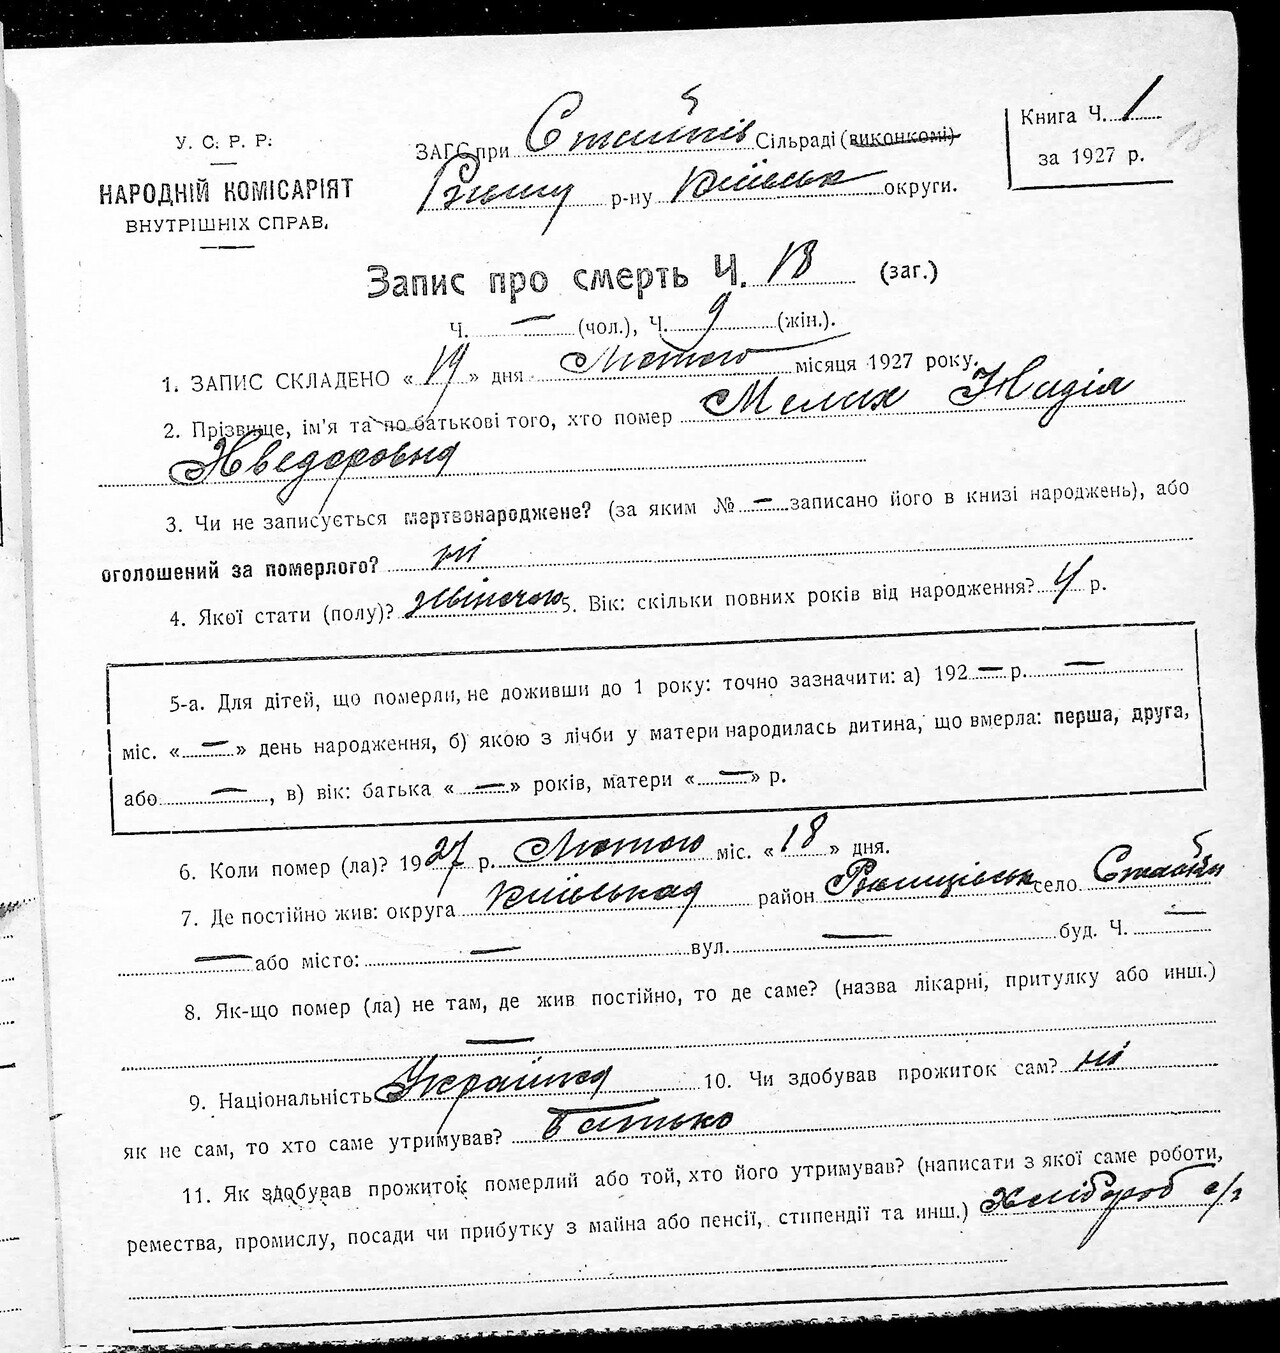 У. С. Р. Р.
НАРОДНІЙ КОМІСАРІЯТ
ВНУТРІШНІХ СПРАВ.
ЗАГС при Стайків Сільраді (виконкомі)
р-ну Київськ округи.
Книга Ч. 1
за 1927 р.
18
Запис про смерть Ч. 18 (заг.)
Ч. — (чол.), Ч. 9 (жін.).
1. ЗАПИС СКЛАДЕНО « 19 » дня Лютого місяця 1927 року.
2. Прізвище, ім'я та по батькові того, хто помер Мелих Надія
Хведоровна
3. Чи не записується мертвонароджене? (за яким № — записано його в книзі народжень), або
оголошений за померлого? ні
4. Якої стати (полу)? жіночого 5. Вік: скільки повних років від народження? 4 р.
5-а. Для дітей, що померли, не доживши до 1 року: точно зазначити: а) 192 — р. —
міс. « — » день народження, б) якою з лічби у матери народилась дитина, що вмерла: перша, друга,
або —, в) вік: батька « — » років, матери « — » р.
6. Коли помер (ла)? 1927 р. Лютого міс. « 18 » дня.
7. Де постійно жив: округа Київська район Ржищівськ село Стайки
— або місто: — вул. — буд. Ч. —
8. Як-що помер (ла) не там, де жив постійно, то де саме? (назва лікарні, притулку або инш.)
—
9. Національність Українка 10. Чи здобував прожиток сам? ні
як не сам, то хто саме утримував? Батько
11. Як здобував прожиток померлий або той, хто його утримував? (написати з якої саме роботи,
ремества, промислу, посади чи прибутку з майна або пенсії, стипендії та инш.) Хлібороб с/г